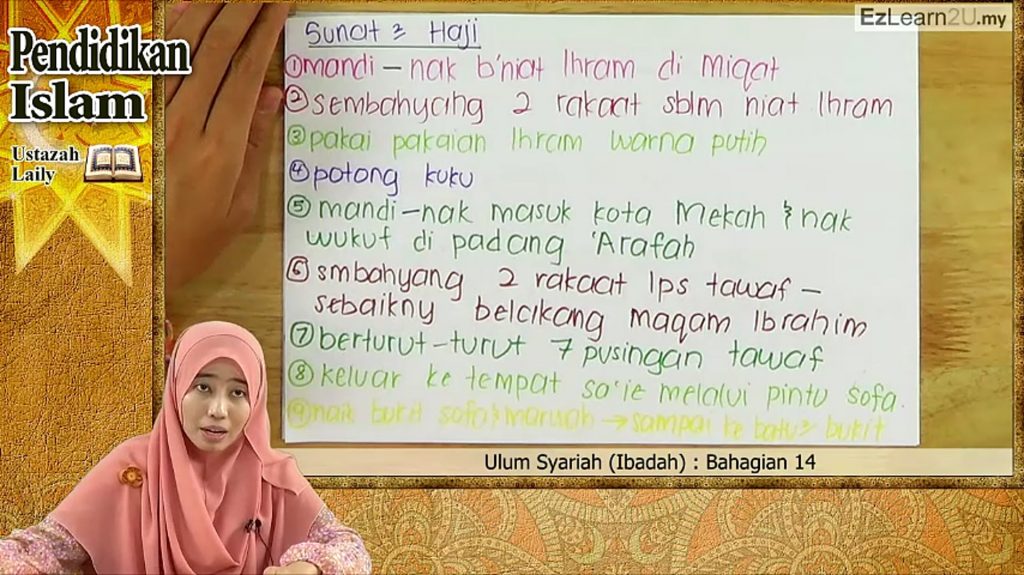 EzLearn2U.my
Pendidikan
Islam
Ustazah
Laily
Sunat2 Haji
① mandi – nak b'niat Ihram di Miqat
② sembahyang 2 rakaat sblm niat Ihram
③ pakai pakaian Ihram warna putih
④ potong kuku
⑤ mandi – nak masuk kota Mekah & nak
wukuf di padang 'Arafah
⑥ smbahyang 2 rakaat lps tawaf –
sebaikny belakang maqam Ibrahim
⑦ berturut-turut 7 pusingan tawaf
⑧ keluar ke tempat sa'ie melalui pintu sofa.
⑨ naik bukit sofa & maruah → sampai ke batu2 bukit
Ulum Syariah (Ibadah) : Bahagian 14